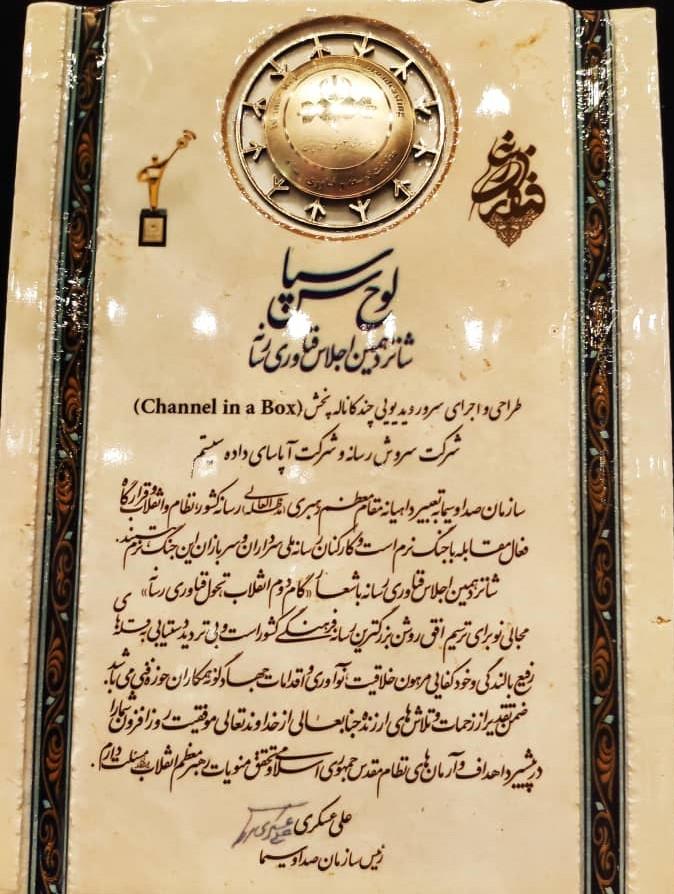 لوح سپاس
شانزدهمین اجلاس فناوری رسانه
طراحی و اجرای سرور ویدیویی چند کاناله پخش (Channel in a Box)
شرکت سروش رسانه و شرکت آپاسای داده سیستم
سازمان صدا و سیما به تعبیر داهیانه مقام معظم رهبری (مدظله العالی) رسانه کشور، نظام و انقلاب و قرارگاه
فعال مقابله با جنگ نرم است و کارکنان رسانه ملی سرداران و سربازان این جنگ نرم هستند.
شانزدهمین اجلاس فناوری رسانه با شعار «گام دوم انقلاب، تحول فناوری رسانه»
مجالی نو برای ترسیم افقی روشن بزرگترین رسانه فرهنگی کشور است و بی تردید دستیابی به قله های
رفیع بالندگی و خودکفایی مرهون خلاقیت، نوآوری و اقدامات جهادگونه همکاران حوزه فنی می باشد.
ضمن تقدیر از زحمات و تلاش های ارزنده جنابعالی از خداوند تعالی موفقیت روزافزون شما را
در پیشبرد اهداف و آرمان های نظام مقدس جمهوری اسلامی و تحقق منویات رهبر معظم انقلاب مسئلت دارم.
علی عسکری
رئیس سازمان صدا و سیما